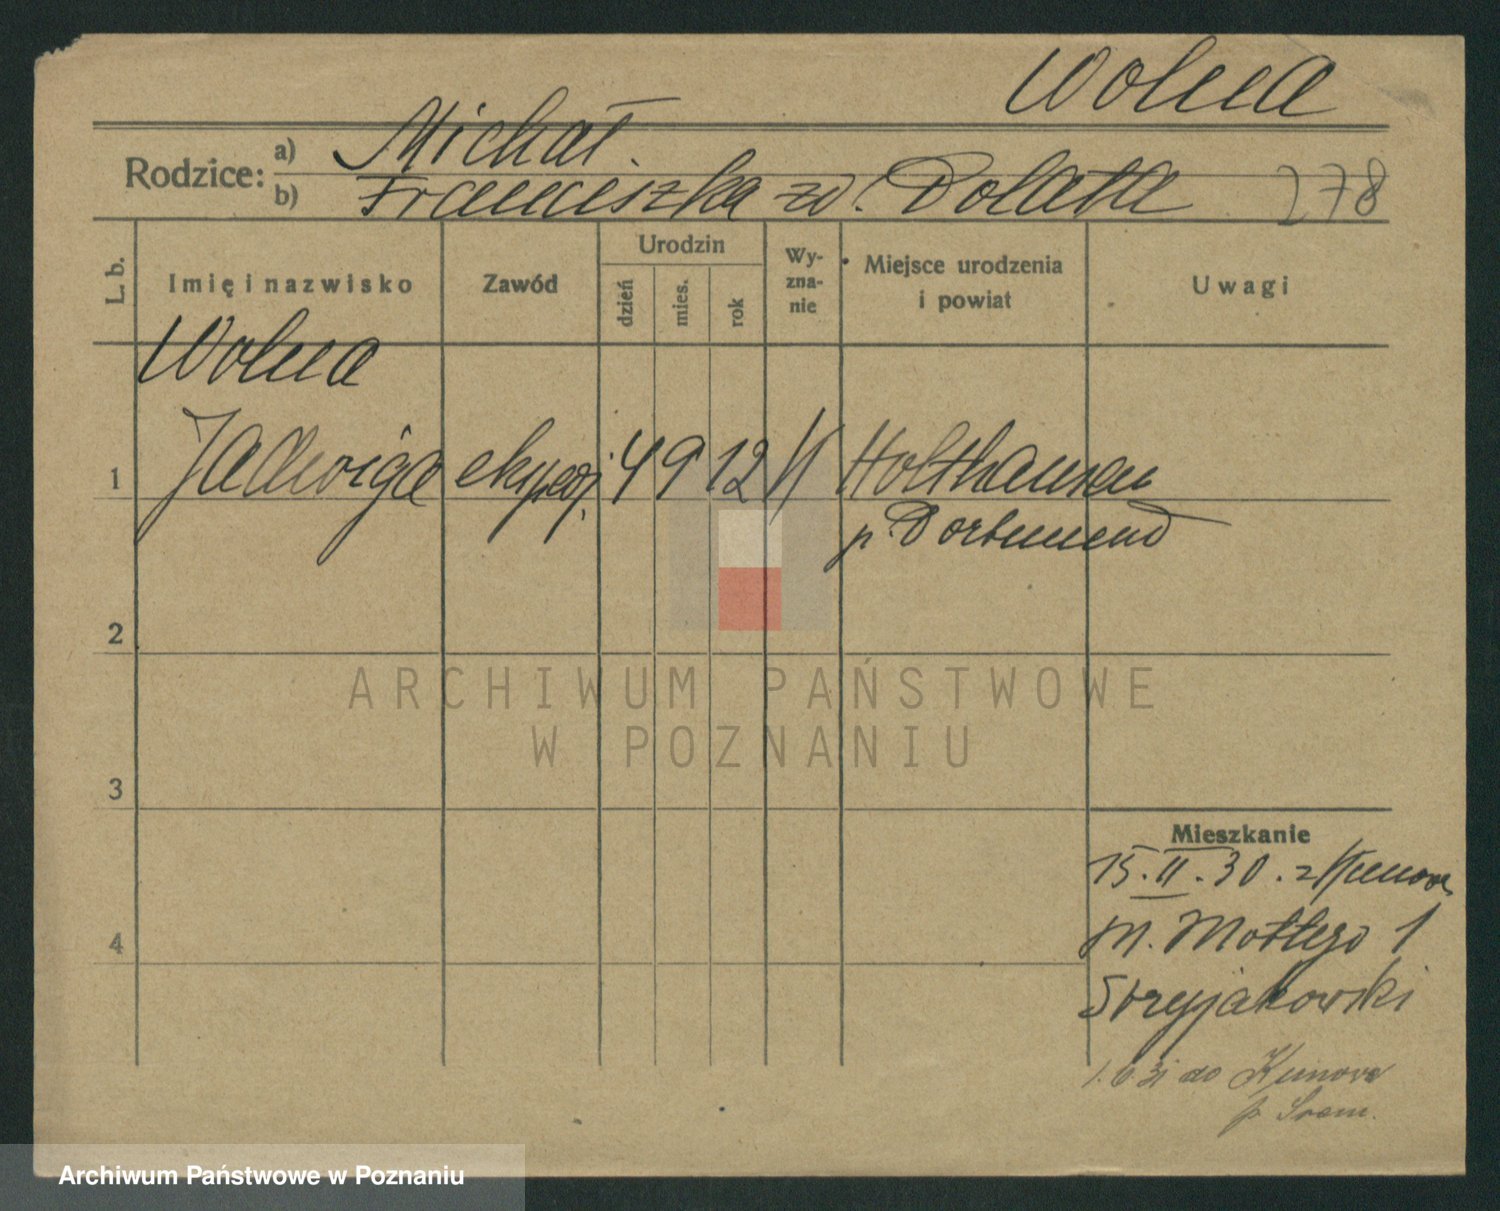 Wolna
Rodzice: a) Michał.
b) Franciszka zd. Dolata 278
L. b. Imię i nazwisko Zawód Urodzin dzień mies. rok Wy-zna-nie Miejsce urodzenia i powiat Uwagi
Wolna
1 Jadwiga ekspedj. 4 9 12 Holthausen
p. Dortmund
2
ARCHIWUM PAŃSTWOWE
W POZNANIU
3
Mieszkanie
15.II.30. z Kunowa
m. Mottego 1
4
Stryjakowski
1.6.31 do Kunowa
p. Srem.
Archiwum Państwowe w Poznaniu